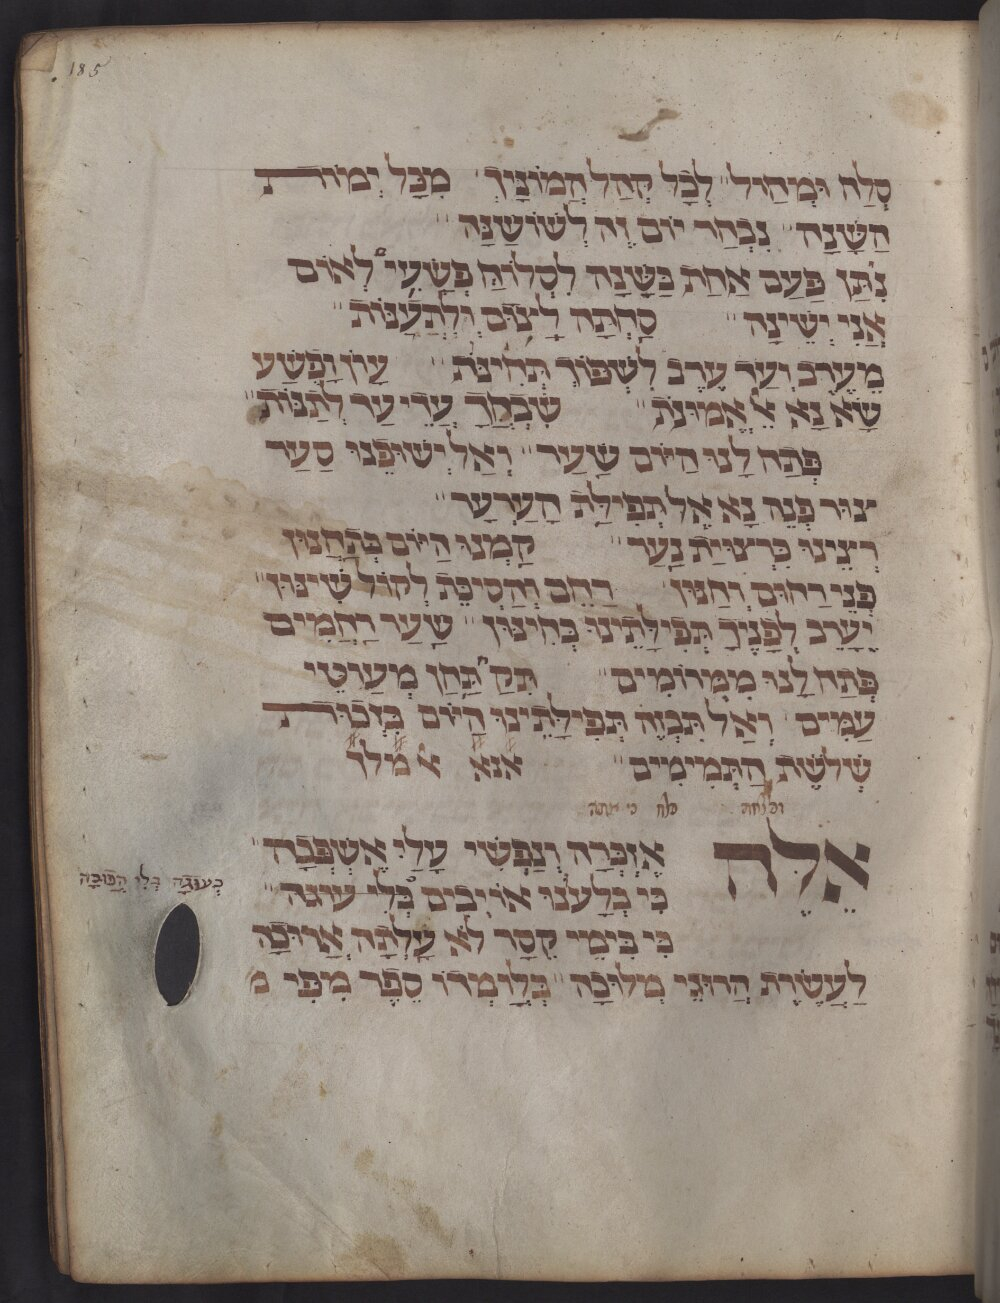 185
סְלַח וּמְחַול׳׳ לְכָל קְהַל הֲמוֹנָיךְ׳׳ מִכָּל יְמוֹת
הַשָּׁנָה׳׳ נִבְחַר יוֹם זֶה לְשׁוֹשַׁנָּה׳׳
נִתַּן פַּעַם אַחַת בַּשָּׁנָה לִסְלוֹחַ פְּשָׁעִי׳ם לְאוֹם
אֲנִי יְשֵׁינָה׳׳ סַחְתָּה לָצוּם וּלְהִתְעַנּוֹת׳׳
מֵעֶרֶב וְעַד עֶרֶב לִשְׁפּוֹךְ תְּחִינֹת׳׳ עָוֹן וָפֶשַׁע
שָׂא נָא אֵל אֱמוּנֹת׳׳ עֲדֵי עַד לְתַנּוֹת׳׳
פְּתַח לָנוּ הַיּוֹם שַׁעַר׳׳ וְאַל יְשׁוּפֵנוּ סַעַר
צוּר פְּנֵה נָא אֶל תְּפִילַּת הָעַרְעָר׳׳
רְצֵינוּ כִּרְצִיַּת נַעַר׳׳ קַמְנוּ הַיּוֹם בְּתַחֲנוּן
פְּנֵי רַחוּם וְחַנּוּן׳׳ רַחֵב וְהַסְכֵּת לְקוֹל שִׁינּוּן׳׳
יֶעֱרַב לְפָנֶיךָ תְּפִילָּתֵינוּ בְּחִינּוּן׳׳ שַׁעַר רַחֲמִים
פְּתַח לָנוּ מִמְּרוֹמִים׳׳ מְעַוטֵי
עַמִּים׳׳ וְאַל תִּבְזֶה תְּפִילָּתֵינוּ הַיּוֹם בִּזְכוּת
שְׁלֹשֶׁת הַתְּמִימִים׳׳ אנא א׳ מלך
וכלחה סלח כי אתה
אֵלֶּה אֶזְכְּרָה וְנַפְשִׁי עָלַי אֶשְׁפְּכָה׳׳
כִּי בְלָעֻנוּ אוֹיְבִים כְּלֵי עוּגָה׳׳
כְּעֻגָּה בְּלִי הֲפוּכָה
כִּי בִּימֵי קֵסַר לֹא עָלְתָה אֲרוּכָה
לַעֲשֶׂרֶת הֲרוּגֵי מְלוּכָה׳׳ בְּלָומְדוֹ סֵפֶר מִפִּי מ